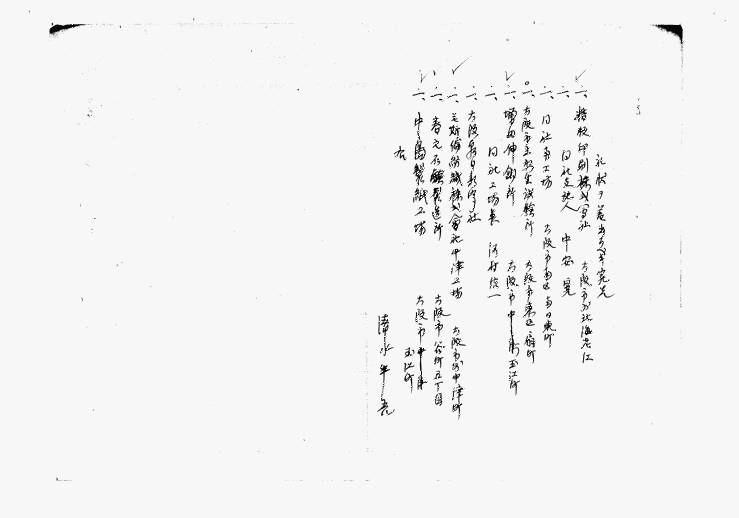 礼状ヲ差出スベキ宛先
一、精版印刷株式会社 大阪市外北海老江
一、同社支配人 中安
一、同社南工場 大阪市南区
一、大阪市立衛生試験所 大阪市東区
一、伸銅所 大阪市中之島玉江町
一、同社工場長 河村
一、大阪毎日新聞社
一、毛斯倫紡織株式会社中津工場 大阪市外中津町
一、春元石鹸製造所 大阪市谷町五丁目
一、中之島製紙工場 大阪市中之島玉江町
右